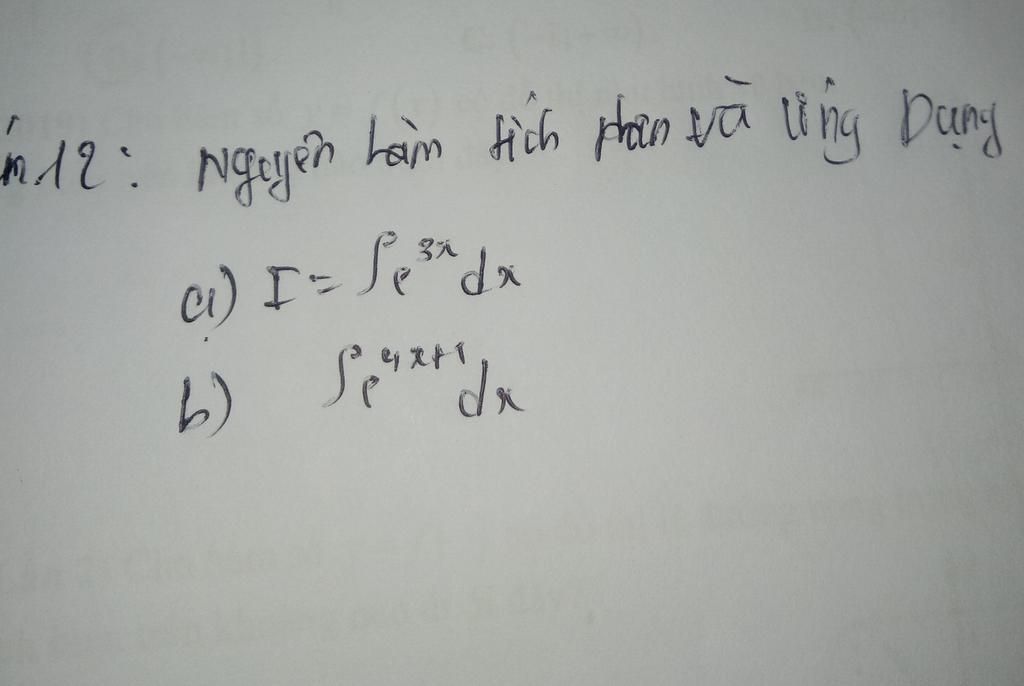 n.12: Nguyên hàm tích phân và Ứng Dụng
a) I = ∫e^{3x} dx
b) ∫e^{4x+1} dx